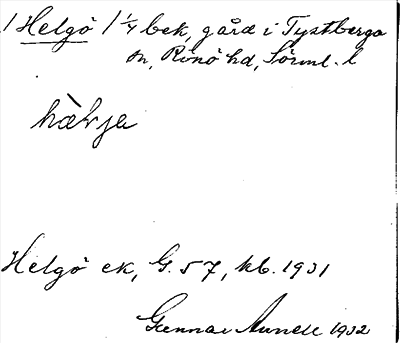 1 Helgö 1 1/4 bek, gård i Tystberga
sn, Rönö hd, Sörml. l
hæ̀lja
Helgö ek, G. 57, kb. 1931
Gunnar 1932